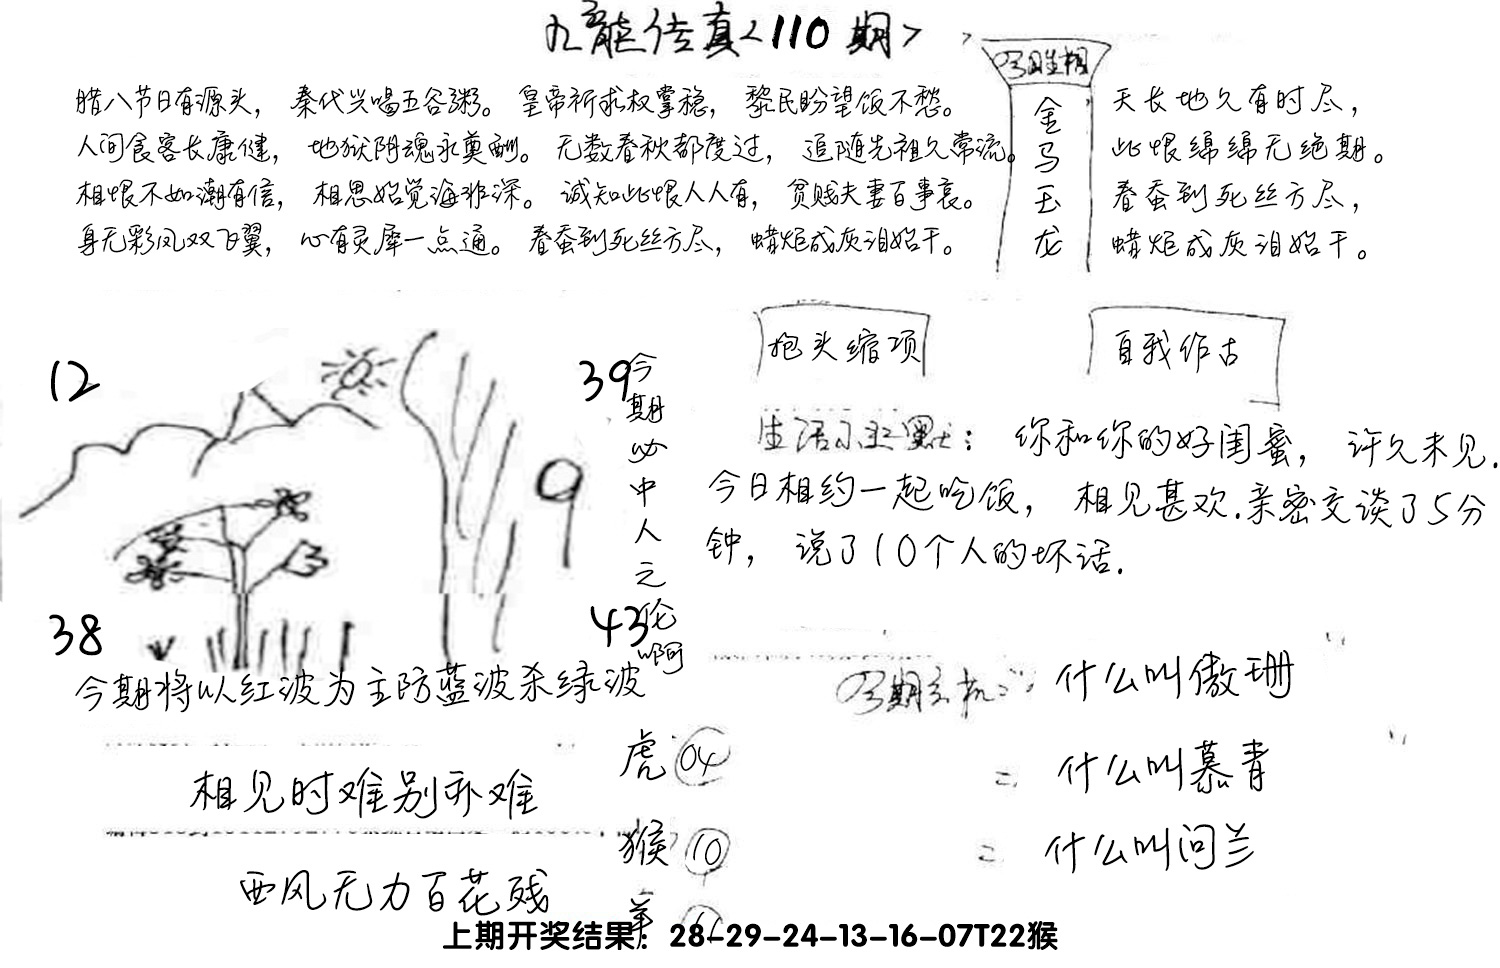 九龙传真<110期>
腊八节日有源头，秦代兴喝五谷粥。皇帝祈求权掌稳，黎民盼望饭不愁。
人间食客长康健，地狱阴魂永奠酬。无数春秋都度过，追随先祖久常流。
相恨不如潮有信，相思始觉海非深。诚知此恨人人有，贫贱夫妻百事哀。
身无彩凤双飞翼，心有灵犀一点通。春蚕到死丝方尽，蜡炬成灰泪始干。
生相
金马玉龙
天长地久有时尽，
此恨绵绵无绝期。
春蚕到死丝方尽，
蜡炬成灰泪始干。
抱头缩项
自我作古
12
39
9
38
43
今期必中人之伦啊
生活幽默：你和你的好闺蜜，许久未见.
今日相约一起吃饭，相见甚欢.亲密交谈了5分
钟，说了10个人的坏话.
今期将以红波为主防蓝波杀绿波
相见时难别亦难
西风无力百花残
虎 04
猴 10
羊
今期玄机：什么叫傲珊
= 什么叫慕青
= 什么叫问兰
上期开奖结果：28-29-24-13-16-07T22猴